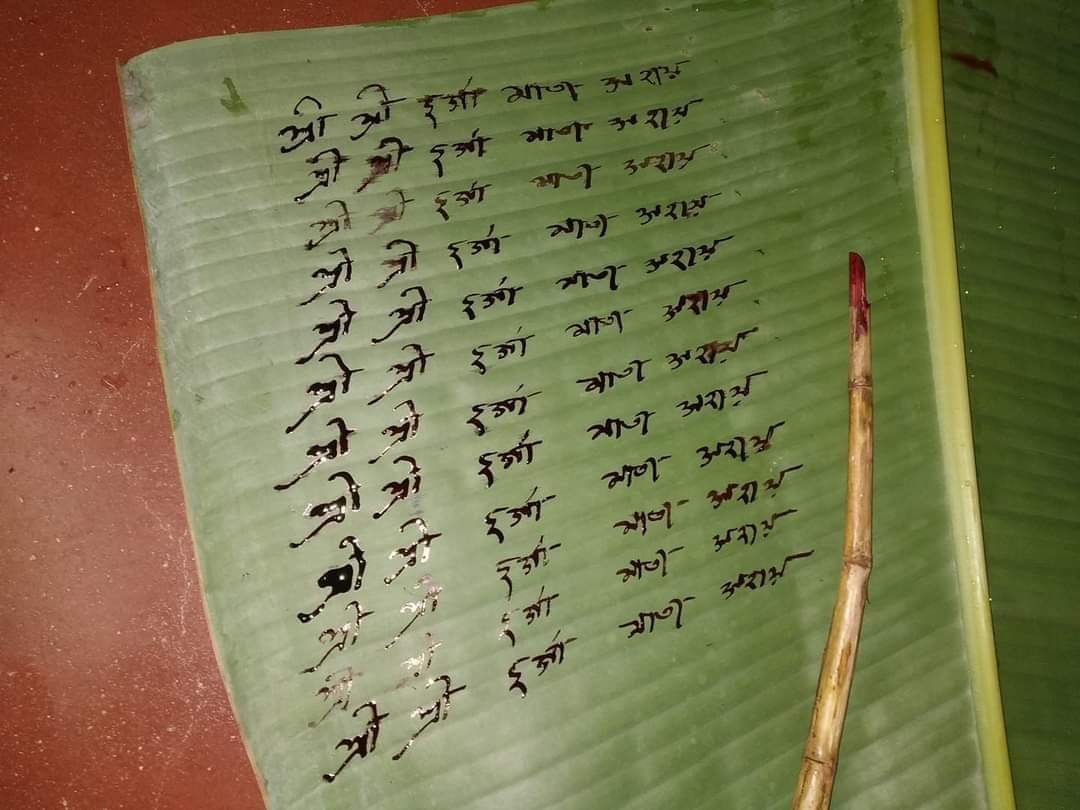 শ্রী শ্রী দুর্গা মাতা সহায়
শ্রী শ্রী দুর্গা মাতা সহায়
শ্রী শ্রী দুর্গা মাতা সহায়
শ্রী শ্রী দুর্গা মাতা সহায়
শ্রী শ্রী দুর্গা মাতা সহায়
শ্রী শ্রী দুর্গা মাতা সহায়
শ্রী শ্রী দুর্গা মাতা সহায়
শ্রী শ্রী দুর্গা মাতা সহায়
শ্রী শ্রী দুর্গা মাতা সহায়
শ্রী শ্রী দুর্গা মাতা সহায়
শ্রী শ্রী দুর্গা মাতা সহায়
শ্রী শ্রী দুর্গা মাতা সহায়